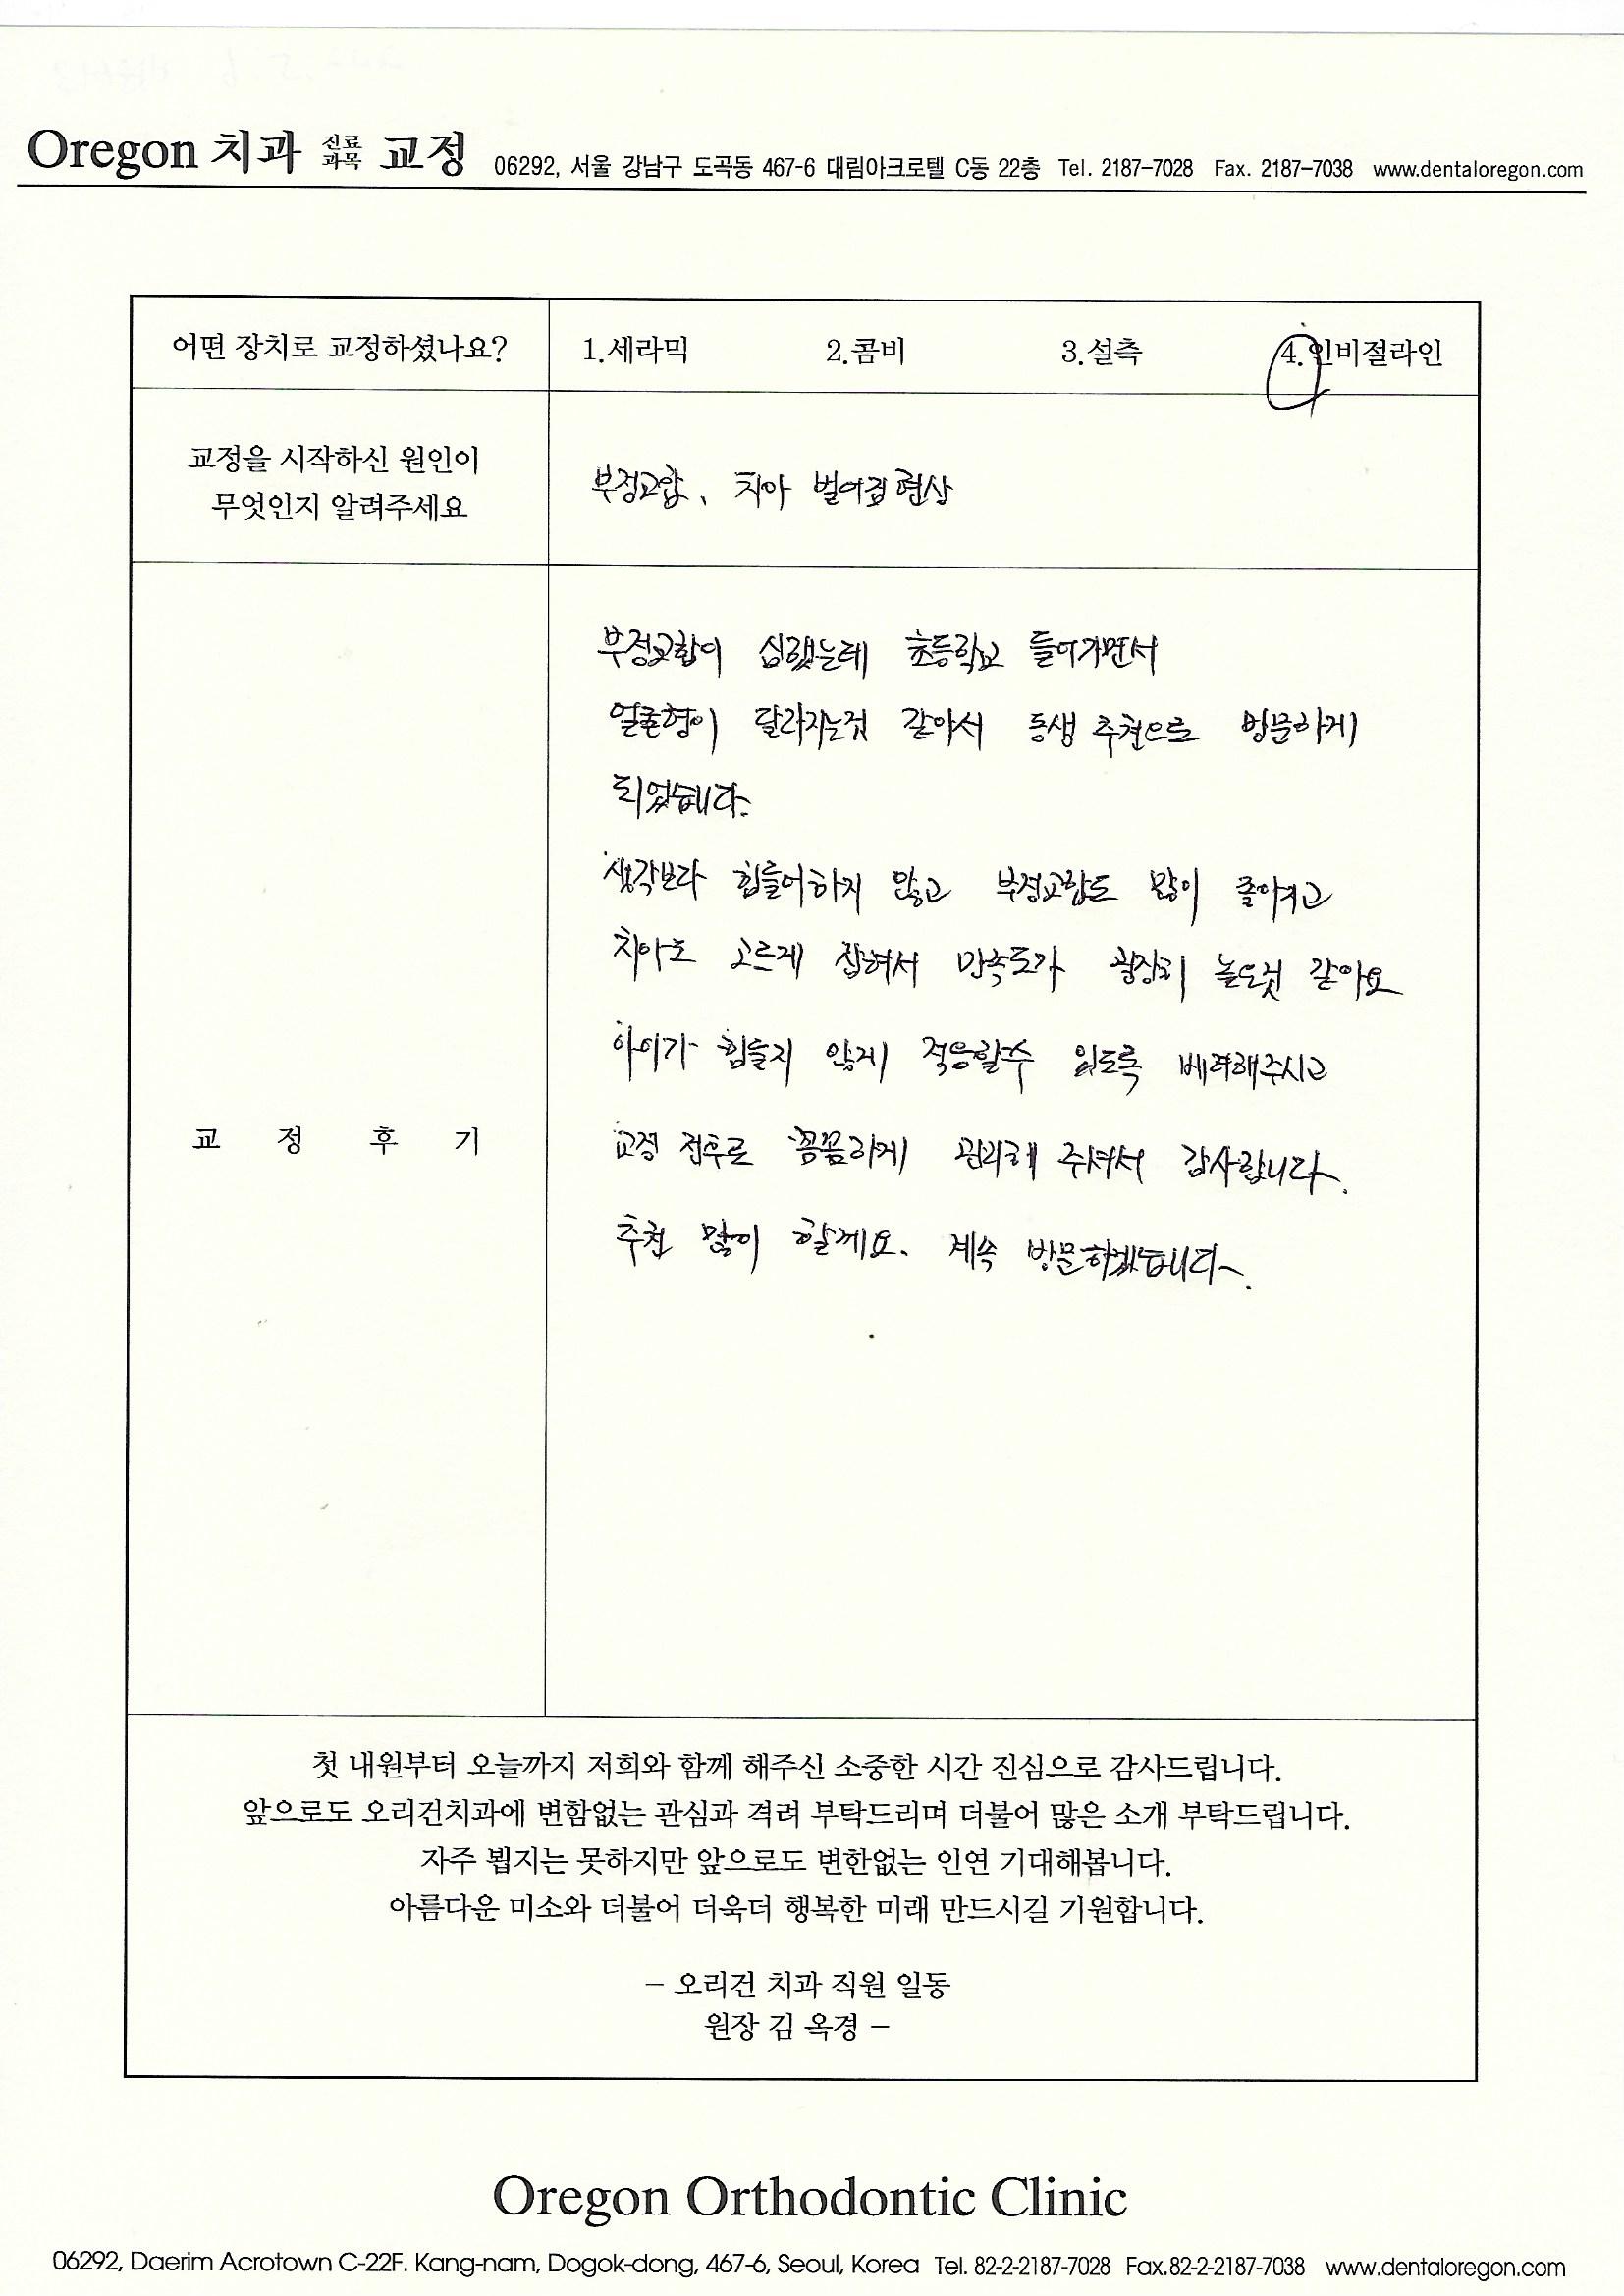 Oregon 치과 진료과목 교정 06292, 서울 강남구 도곡동 467-6 대림아크로텔 C동 22층 Tel. 2187-7028 Fax. 2187-7038 www.dentaloregon.com
어떤 장치로 교정하셨나요? 1.세라믹 2.콤비 3.설측 4.인비절라인
교정을 시작하신 원인이
무엇인지 알려주세요
부정교합, 치아 벌어짐 현상
교 정 후 기
부정교합이 심했는데 초등학교 들어가면서
얼굴형이 달라지는것 같아서 동생 추천으로 방문하게
되었습니다.
생각보다 힘들어하지 않고 부정교합도 많이 좋아지고
치아도 고르게 잡혀서 만족도가 굉장히 높은것 같아요
아이가 힘들지 않게 적응할수 있도록 배려해주시고
교정 전후로 꼼꼼하게 관리해 주셔서 감사합니다.
추천 많이 할게요. 계속 방문하겠습니다~.
첫 내원부터 오늘까지 저희와 함께 해주신 소중한 시간 진심으로 감사드립니다.
앞으로도 오리건치과에 변함없는 관심과 격려 부탁드리며 더불어 많은 소개 부탁드립니다.
자주 뵙지는 못하지만 앞으로도 변한없는 인연 기대해봅니다.
아름다운 미소와 더불어 더욱더 행복한 미래 만드시길 기원합니다.
– 오리건 치과 직원 일동
원장 김 옥경 –
Oregon Orthodontic Clinic
06292, Daerim Acrotown C-22F. Kang-nam, Dogok-dong, 467-6, Seoul, Korea Tel. 82-2-2187-7028 Fax.82-2-2187-7038 www.dentaloregon.com